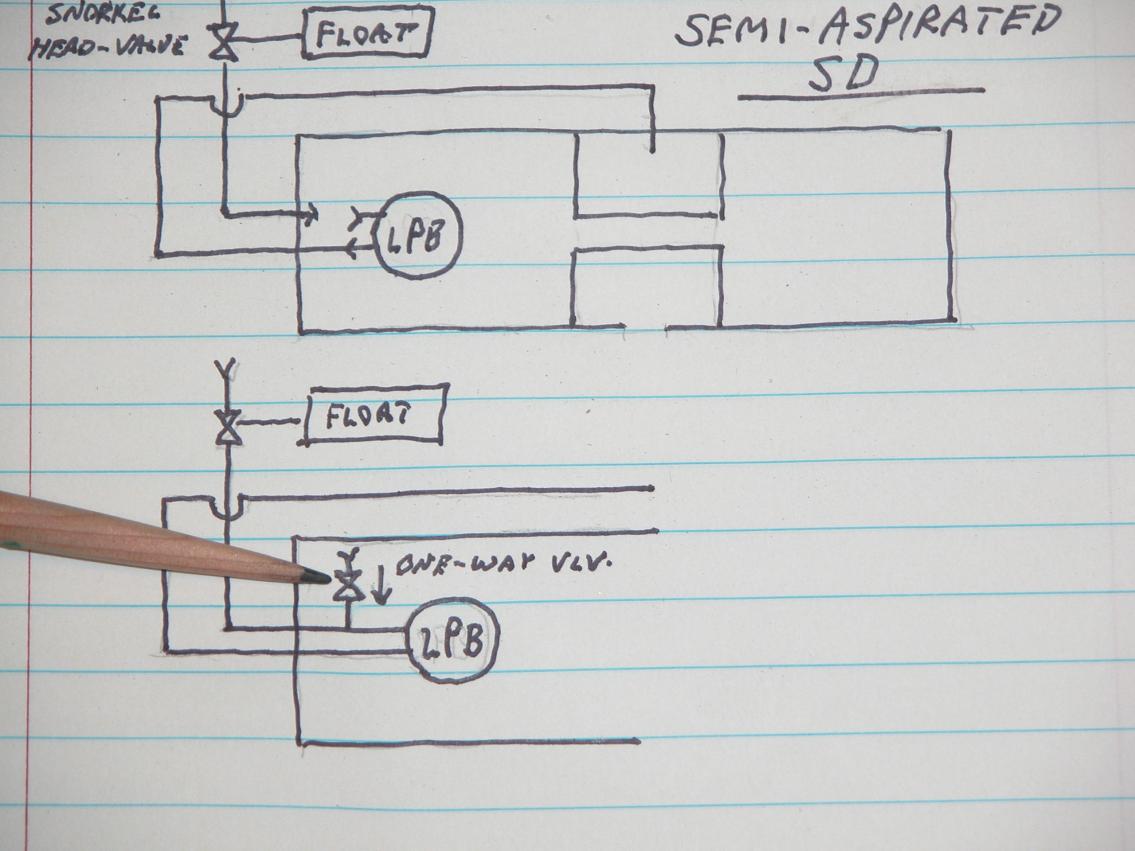 SNORKEL
HEAD-VALVE
FLOAT
SEMI-ASPIRATED
SD
LPB
FLOAT
ONE-WAY VLV.
LPB